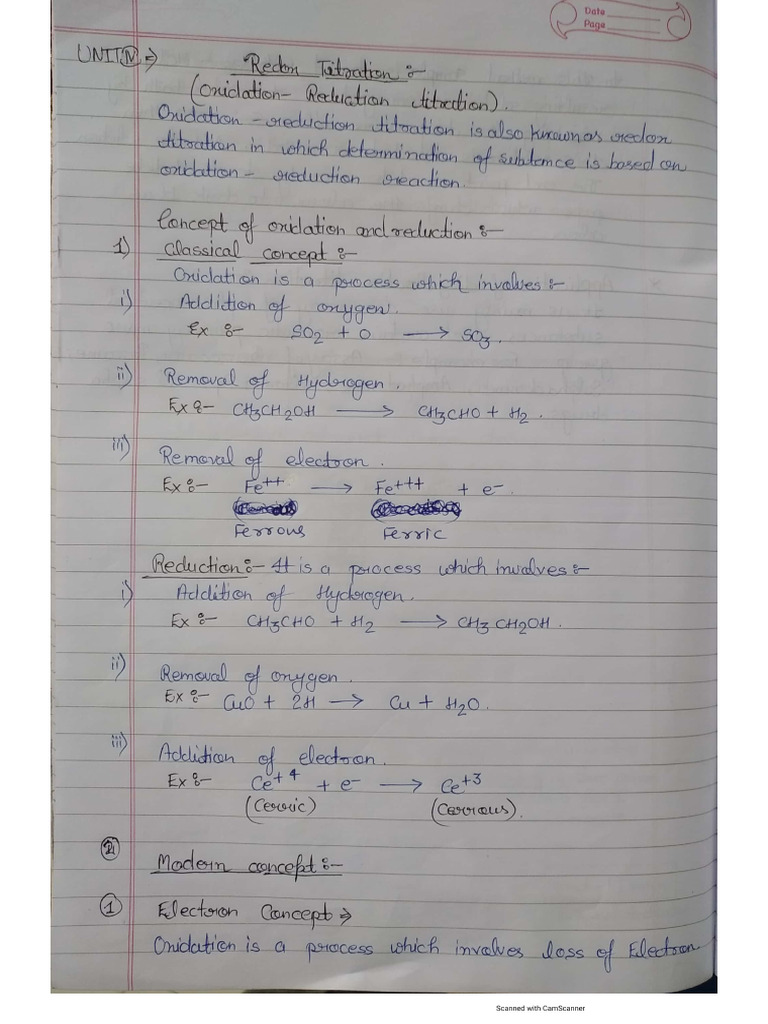 Date
Page
UNIT IV ⇒ Redox Titration :-
(Oxidation - Reduction titration).
Oxidation - reduction titration is also known as redox
titration in which determination of subtance is based on
oxidation - reduction reaction.
Concept of oxidation and reduction :-
1) Classical concept :-
Oxidation is a process which involves :-
i) Addition of oxygen.
Ex :- SO2 + O → SO3.
ii) Removal of Hydrogen.
Ex :- CH3CH2OH → CH3CHO + H2.
iii) Removal of electron.
Ex :- Fe++ → Fe+++ + e-
Ferrous Ferric
Reduction :- It is a process which involves :-
i) Addition of Hydrogen.
Ex :- CH3CHO + H2 → CH3CH2OH.
ii) Removal of oxygen.
Ex :- CuO + 2H → Cu + H2O.
iii) Addition of electron.
Ex :- Ce+4 + e- → Ce+3
(Cerric) (Cerrous).
2 Modern concept :-
1 Electron Concept ⇒
Oxidation is a process which involves loss of Electron
Scanned with CamScanner